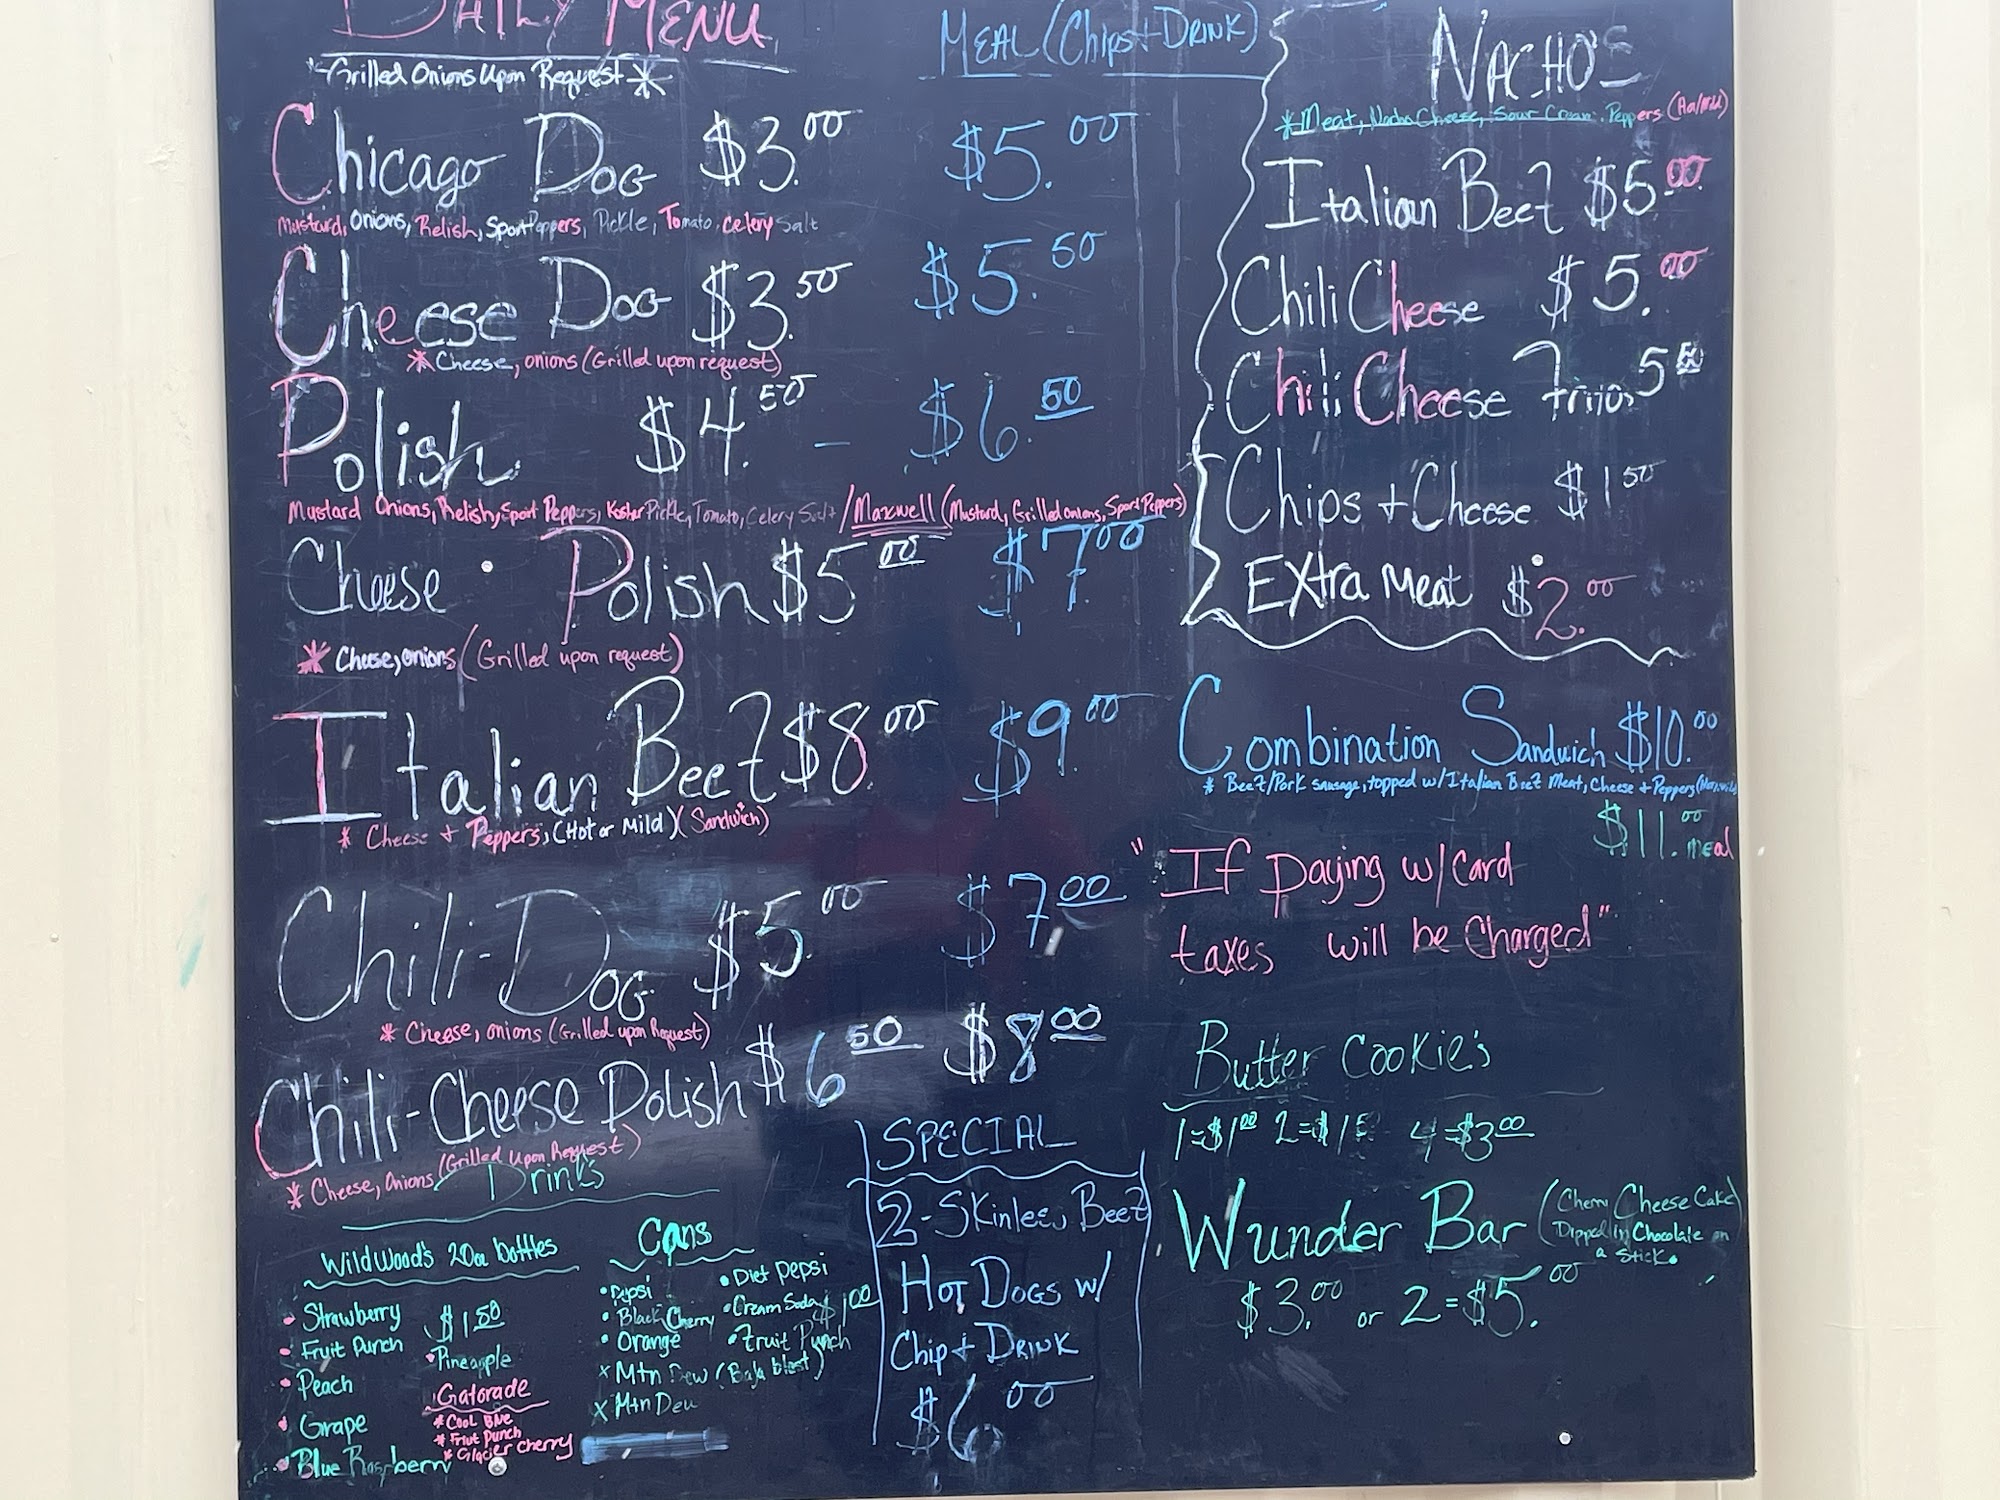 DAILY MENU
"Grilled Onions Upon Request *
MEAL (Chips + DRINK)
Chicago Dog $3.00 $5.00
Mustard, Onions, Relish, Sport Peppers, Pickle, Tomato, Celery Salt
Cheese Dog $3.50 $5.50
* Cheese, onions (Grilled upon request)
Polish $4.50 - $6.50
Mustard Onions, Relish, Sport Peppers, Kosher Pickle, Tomato, Celery Salt / Maxwell (Mustard, Grilled onions, Sport Peppers)
Cheese Polish $5.00 $7.00
* Cheese, onions (Grilled upon request)
Italian Beef $8.00 $9.00
* Cheese + Peppers, (Hot or Mild) (Sandwich)
Chili-Dog $5.00 $7.00
* Cheese, onions (Grilled upon Request)
Chili-Cheese Polish $6.50 $8.00
* Cheese, Onions (Grilled Upon Request)
Drink's
Wildwood's 20oz bottles
• Strawberry $1.50
• Fruit Punch
• Pineapple
• Peach
• Grape
• Blue Raspberry
Gatorade
* Cool Blue
* Friut Punch
* Glacier Cherry
Cans
• Pepsi • Diet Pepsi
• Black Cherry • Cream Soda $1.00
• Orange • Fruit Punch
x Mtn Dew (Baja blast)
x Mtn Dew
SPECIAL
2-Skinless Beef
Hot Dogs w/
Chip + Drink
$6.00
NACHO'S
* Meat, Nacho Cheese, Sour Cream, Peppers
Italian Beef $5.00
Chili Cheese $5.00
Chili Cheese Fritos 5.50
Chips + Cheese $1.50
EXtra Meat $2.00
Combination Sandwich $10.00
* Beef/Pork sausage, topped w/ Italian Beef Meat, Cheese + Peppers
$11.00 meal
"If paying w/card
taxes will be Charged"
Butter Cookie's
1=$1.00 4=$3.00
Wunder Bar (Cherry Cheese Cake
Dipped in Chocolate on
a stick.
$3.00 or 2=$5.00